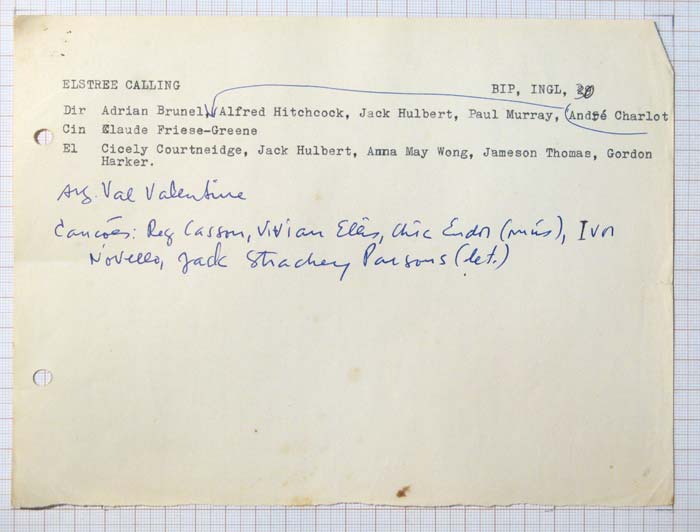 ELSTREE CALLING BIP, INGL, 30
Dir Adrian Brunel, Alfred Hitchcock, Jack Hulbert, Paul Murray, André Charlot
Cin Claude Friese-Greene
El Cicely Courtneidge, Jack Hulbert, Anna May Wong, Jameson Thomas, Gordon
Harker.
Arg. Val Valentine
Canções: Reg Casson, Vivian Ellis, Chic Endor (mús), Ivor
Novello, Jack Strachey Parsons (let.)